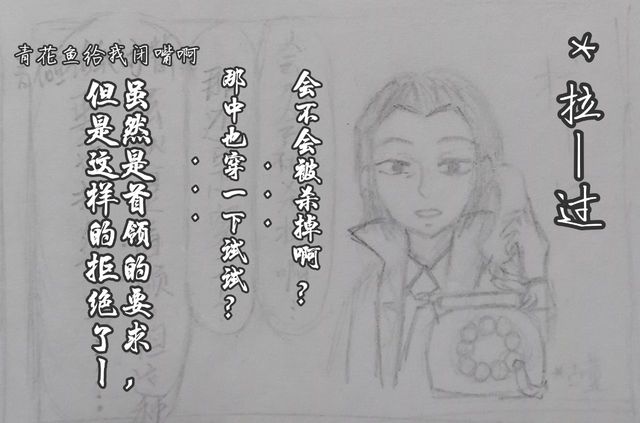 *拉—过
会不会被杀掉啊？
···
那中也穿一下试试？
···
虽然是首领的要求，
但是这样的拒绝了—
青花鱼给我闭嘴啊